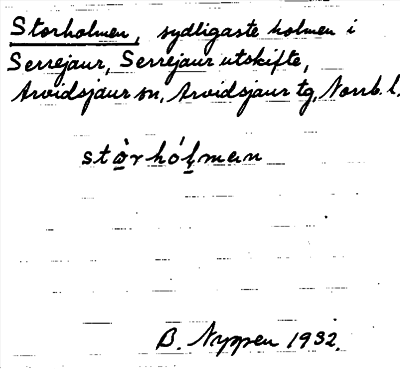 Storholmen, sydligaste holmen i
Serrejaur, Serrejaur utskifte,
Arvidsjaur sn, Arvidsjaur tg, Norrb. l.
stòr̀hólman
B. Nyppen 1932.